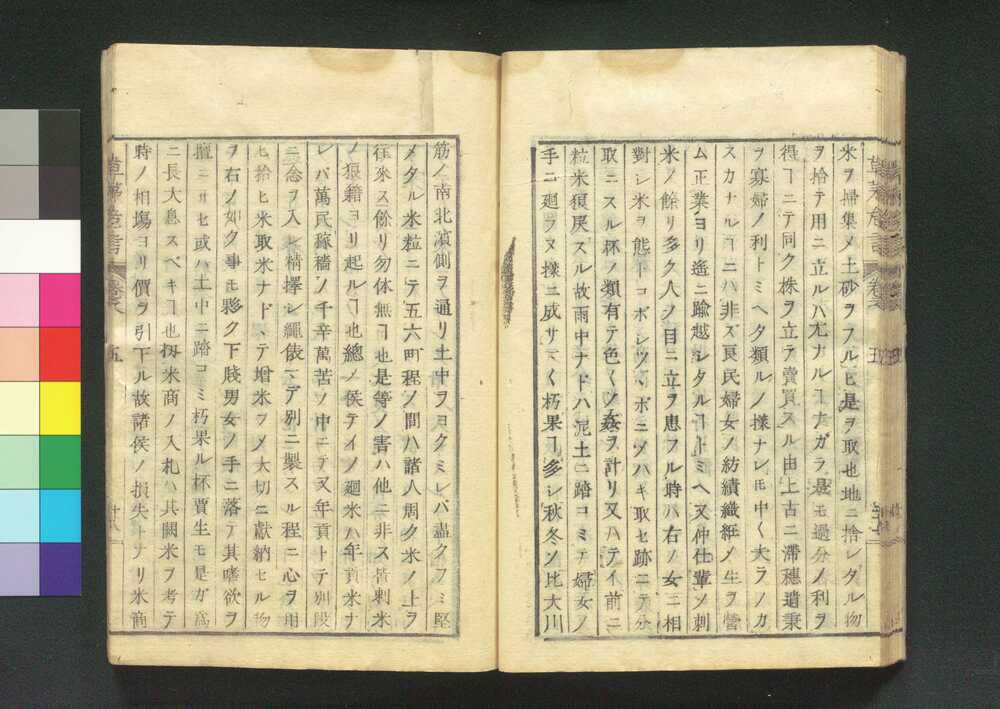 米ヲ掃集メ土砂ヲフルヒ是ヲ取也地ニ捨レタル物
ヲ拾テ用ニ立ルハ尤ナルヿナガラ是モ過分ノ利ヲ
得ヿニテ同ク株ヲ立テ賣買スル由上古ニ滞穗遺秉
ヲ寡婦ノ利トミヘタ類ルノ様ナレ𪜈中〱大ラノカ
スカナルヿニハ非ズ良民婦女ノ紡績織絍メ生ヲ營
ム正業ヨリ遙ニ踰越シタルヿトミヘ又仲仕輩ノ刺
米ノ餘リ多ク人ノ目ニ立ヲ患フル時ハ右ノ女ニ相
對シ米ヲ態トコボシツヽボニヅハギ取セ跡ニテ分
取ニスル杯ノ類有テ色〱ノ姦ヲ計リ又ハテイ前ニ
粒米狼戻スル故雨中ナドハ泥土ニ踏コミテ婦女ノ
手ニ廻ラヌ様ニ成サマ〱朽果ヿ多シ秋冬ノ比大川
筋ノ南北濵側ヲ通リ土中ヲヨクミレバ盡クフミ堅
メタル米粒ニテ五六町程ノ間ハ諸人屑ク米ノ上ヲ
往來ス餘リ勿体無ヿ也是等ノ害ハ他ニ非ス皆剌米
ノ狼籍ヨリ起ルヿ也總ノ侯テイノ廻米ハ年貢米ナ
レバ萬民稼穡ノ千辛萬苦ノ中ニテ又年貢トテ別段
ニ念ヲ入レ精擇シ繩俵マデ別ニ製スル程ニ心ヲ用
ヒ拾ヒ米取米ナドヽテ増米ヲメ大切ニ獻納セル物
ヲ右ノ如ク事モ夥ク下賤男女ノ手ニ落テ其嗜欲ヲ
擅ニサセ或ハ土中ニ踏コミ朽果ル杯賈生モ是ガ為
ニ長大息スベキヿ也扨米商ノ入札ハ其闕米ヲ考テ
時ノ相場ヨリ價ヲ引下ル故諸侯ノ損失トナリ米商
草茅危言
五